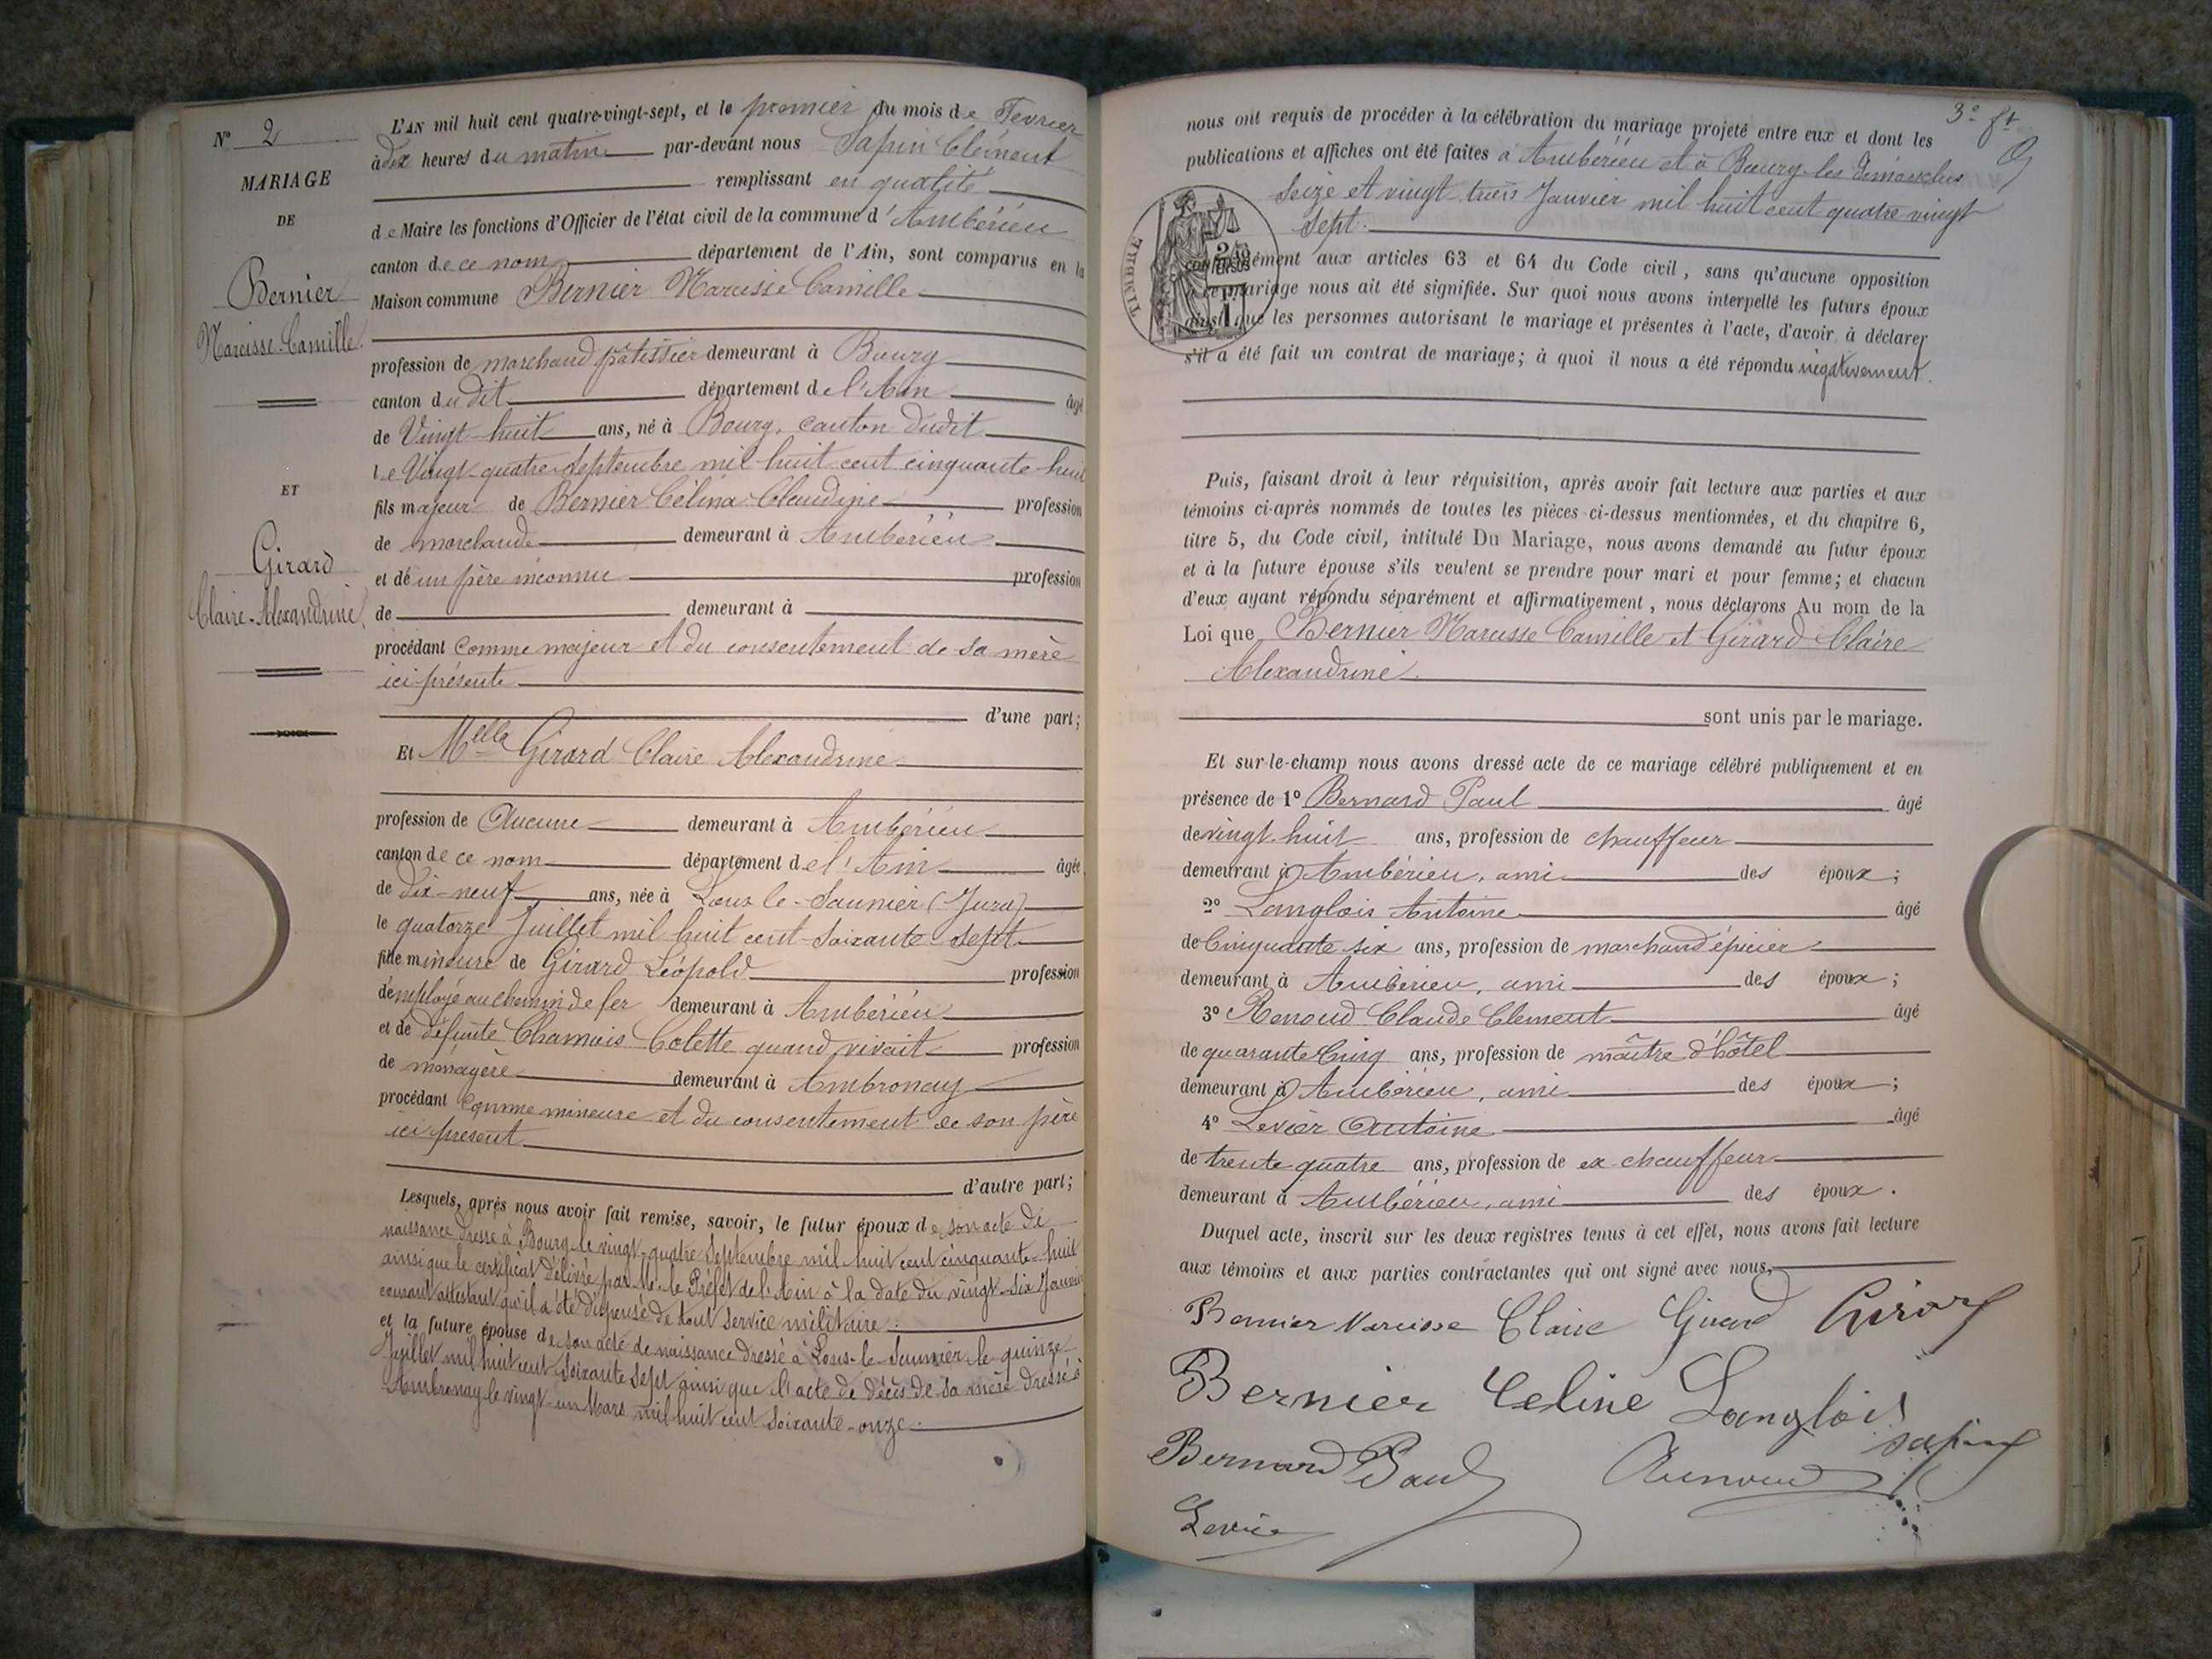 N° 2
MARIAGE
DE
Bernier
Narcisse Camille.
ET
Girard
Claire-Alexandrine
L'AN mil huit cent quatre-vingt-sept, et le premier du mois de Fevrier
à dix heures du matin par-devant nous Sapin Clément
remplissant en qualité
de Maire les fonctions d'Officier de l'état civil de la commune d'Ambérieu
canton de ce nom département de l'Ain, sont comparus en la
Maison commune Bernier Narcisse Camille
profession de marchand pâtissier demeurant à Bourg
canton du dit département de l'Ain âgé
de Vingt-huit ans, né à Bourg, canton dudit
le Vingt-quatre Septembre mil huit cent cinquante-huit
fils majeur de Bernier Célina Claudine profession
de marchande demeurant à Ambérieu
et de un père inconnu profession
de demeurant à
procédant comme majeur et du consentement de sa mère
ici présente
d'une part;
Et Melle Girard Claire Alexandrine
profession de Aucune demeurant à Ambérieu
canton de ce nom département de l'Ain âgée
de dix-neuf ans, née à Lons le-Saunier (Jura)
le quatorze Juillet mil huit cent soixante sept
fille mineure de Girard Léopold profession
d'employé au chemin de fer demeurant à Ambérieu
et de défunte Chamois Colette quand vivait profession
de ménagère demeurant à Ambronay
procédant comme mineure et du consentement de son père
ici présent
d'autre part;
Lesquels, après nous avoir fait remise, savoir, le futur époux de son acte de
naissance dressé à Bourg le vingt-quatre Septembre mil huit cent cinquante-huit
ainsi que le certificat délivré par Mr. le Préfet de l'Ain à la date du vingt-six Janvier
courant attestant qu'il a été dispensé de tout service militaire.
et la future épouse de son acte de naissance dressé à Lons-le-Saunier le quinze
Juillet mil huit cent soixante sept ainsi que l'acte de décès de sa mère dressé à
Ambronay le vingt-un Mars mil huit cent soixante-onze.
3e ft
nous ont requis de procéder à la célébration du mariage projeté entre eux et dont les
publications et affiches ont été faites à Ambérieu et à Bourg les dimanches
Seize et vingt-trois Janvier mil huit cent quatre vingt
Sept.
TIMBRE
conformément aux articles 63 et 64 du Code civil, sans qu'aucune opposition
à ce mariage nous ait été signifiée. Sur quoi nous avons interpellé les futurs époux
ainsi que les personnes autorisant le mariage et présentes à l'acte, d'avoir à déclarer
s'il a été fait un contrat de mariage; à quoi il nous a été répondu négativement.
Puis, faisant droit à leur réquisition, après avoir fait lecture aux parties et aux
témoins ci-après nommés de toutes les pièces ci-dessus mentionnées, et du chapitre 6,
titre 5, du Code civil, intitulé Du Mariage, nous avons demandé au futur époux
et à la future épouse s'ils veulent se prendre pour mari et pour femme; et chacun
d'eux ayant répondu séparément et affirmativement, nous déclarons Au nom de la
Loi que Bernier Narcisse Camille et Girard Claire
Alexandrine
sont unis par le mariage.
Et sur-le-champ nous avons dressé acte de ce mariage célébré publiquement et en
présence de 1° Bernard Paul âgé
de vingt-huit ans, profession de chauffeur
demeurant à Ambérieu, ami des époux;
2° Langlois Antoine âgé
de Cinquante six ans, profession de marchand épicier
demeurant à Ambérieu, ami des époux;
3° Renoud Claude Clement âgé
de quarante Cinq ans, profession de maître d'hôtel
demeurant à Ambérieu, ami des époux;
4° Levier Antoine âgé
de trente quatre ans, profession de ex chauffeur
demeurant à Ambérieu, ami des époux.
Duquel acte, inscrit sur les deux registres tenus à cet effet, nous avons fait lecture
aux témoins et aux parties contractantes qui ont signé avec nous,
Bernier Narcisse Claire Girard Girard
Bernier Celine Langlois
Sapin
Bernard Paul Renoud
Levier